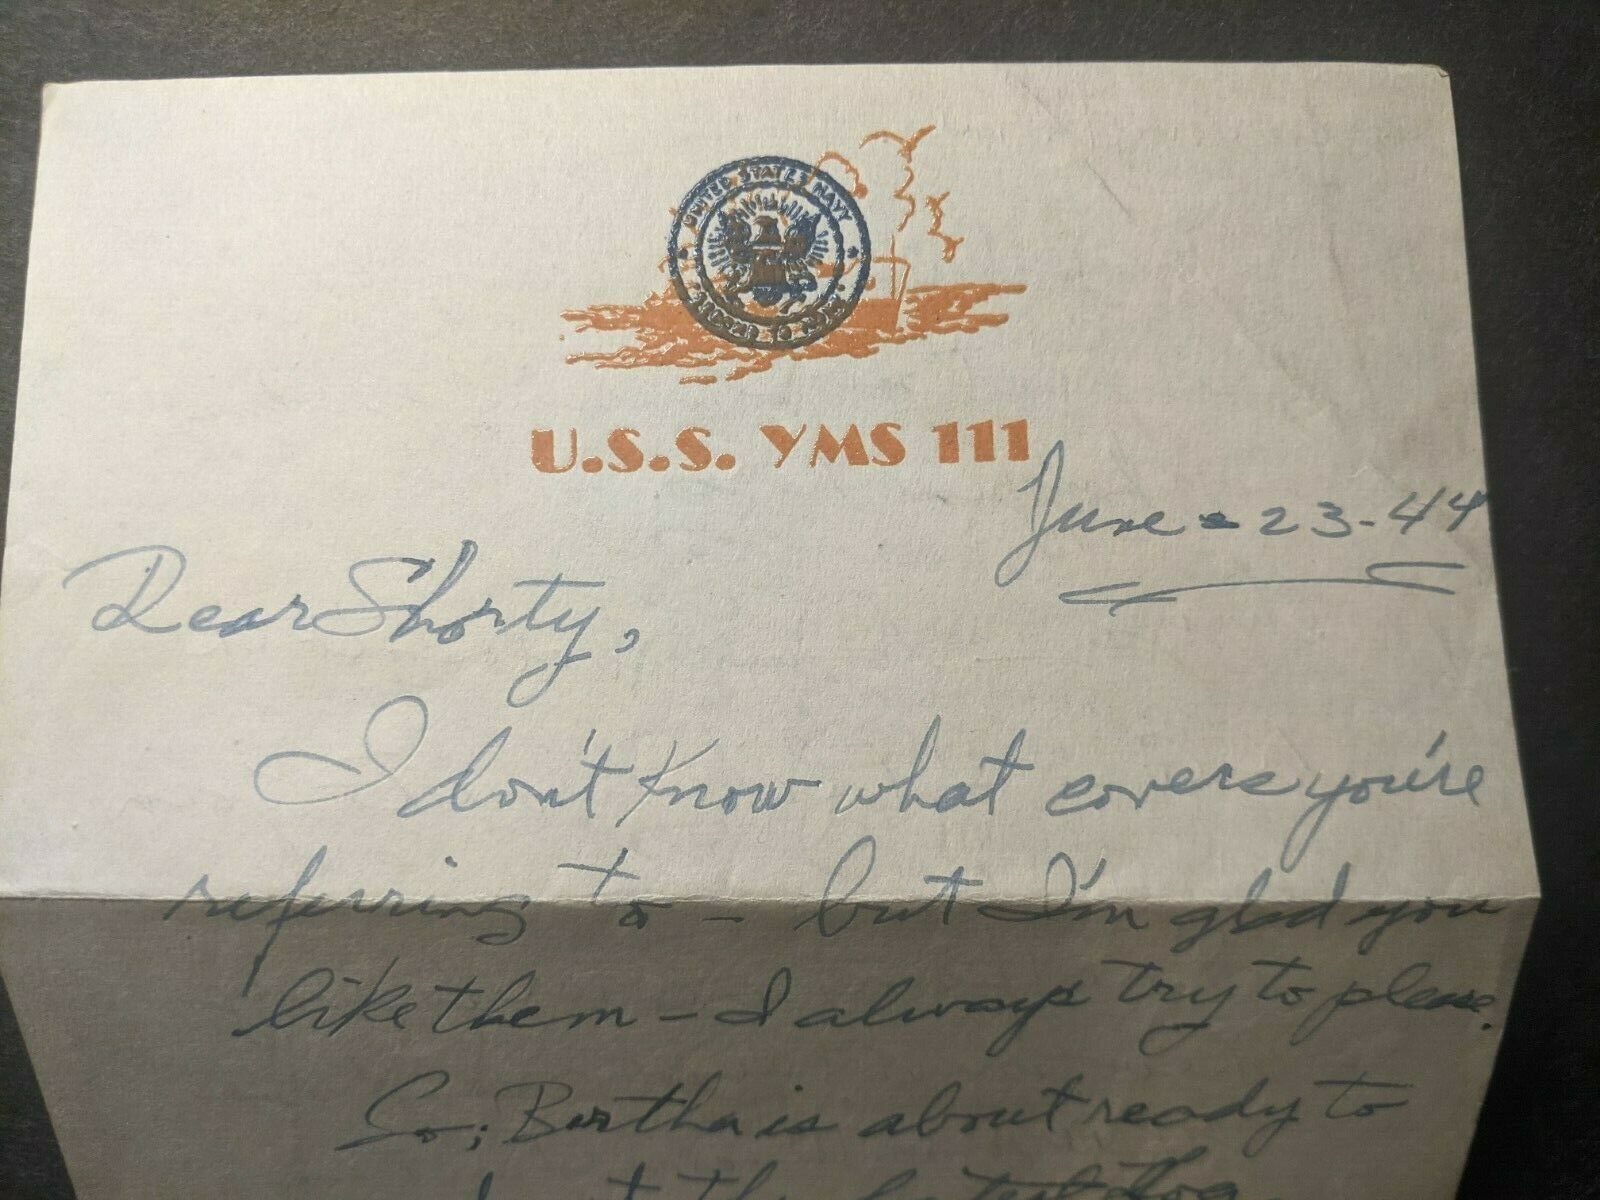 UNITED STATES NAVY
U.S.S. YMS 111
June - 23 - 44
Dear Shorty,
I don't know what covers you're
referring to - but I'm glad you
like them - I always try to please.
So; Bertha is about ready to
the latest